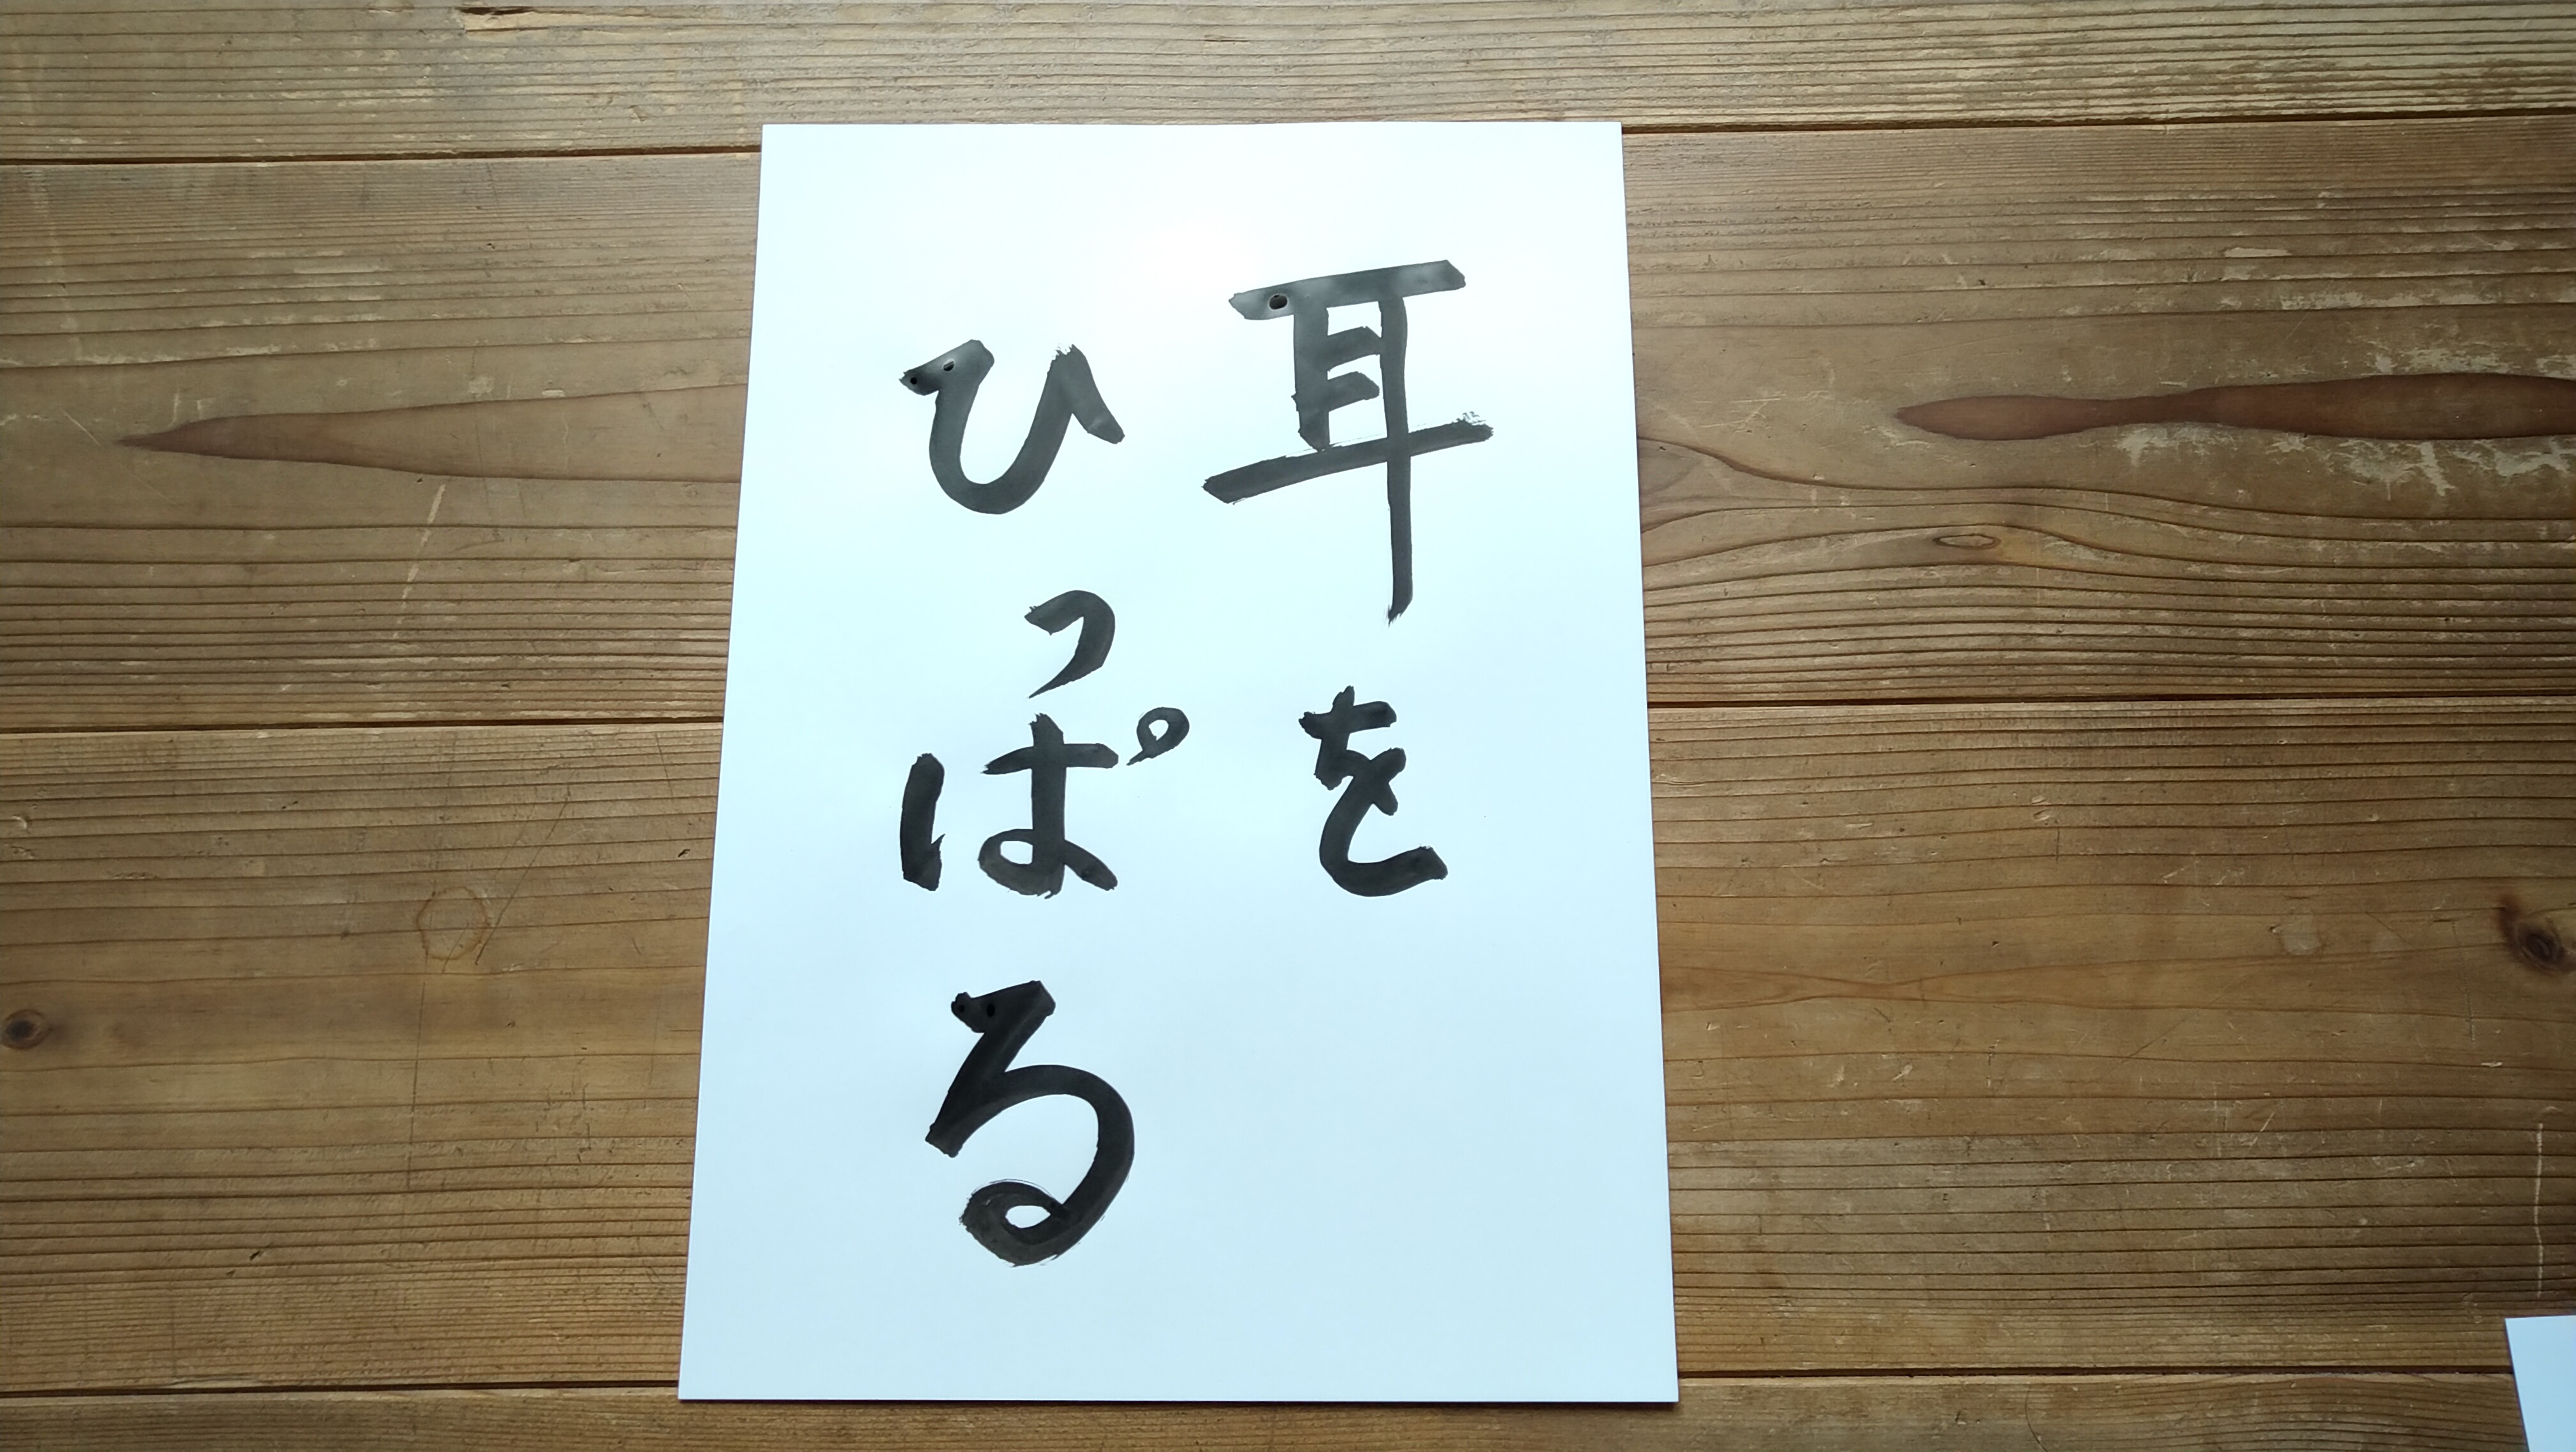 耳を
ひっぱる